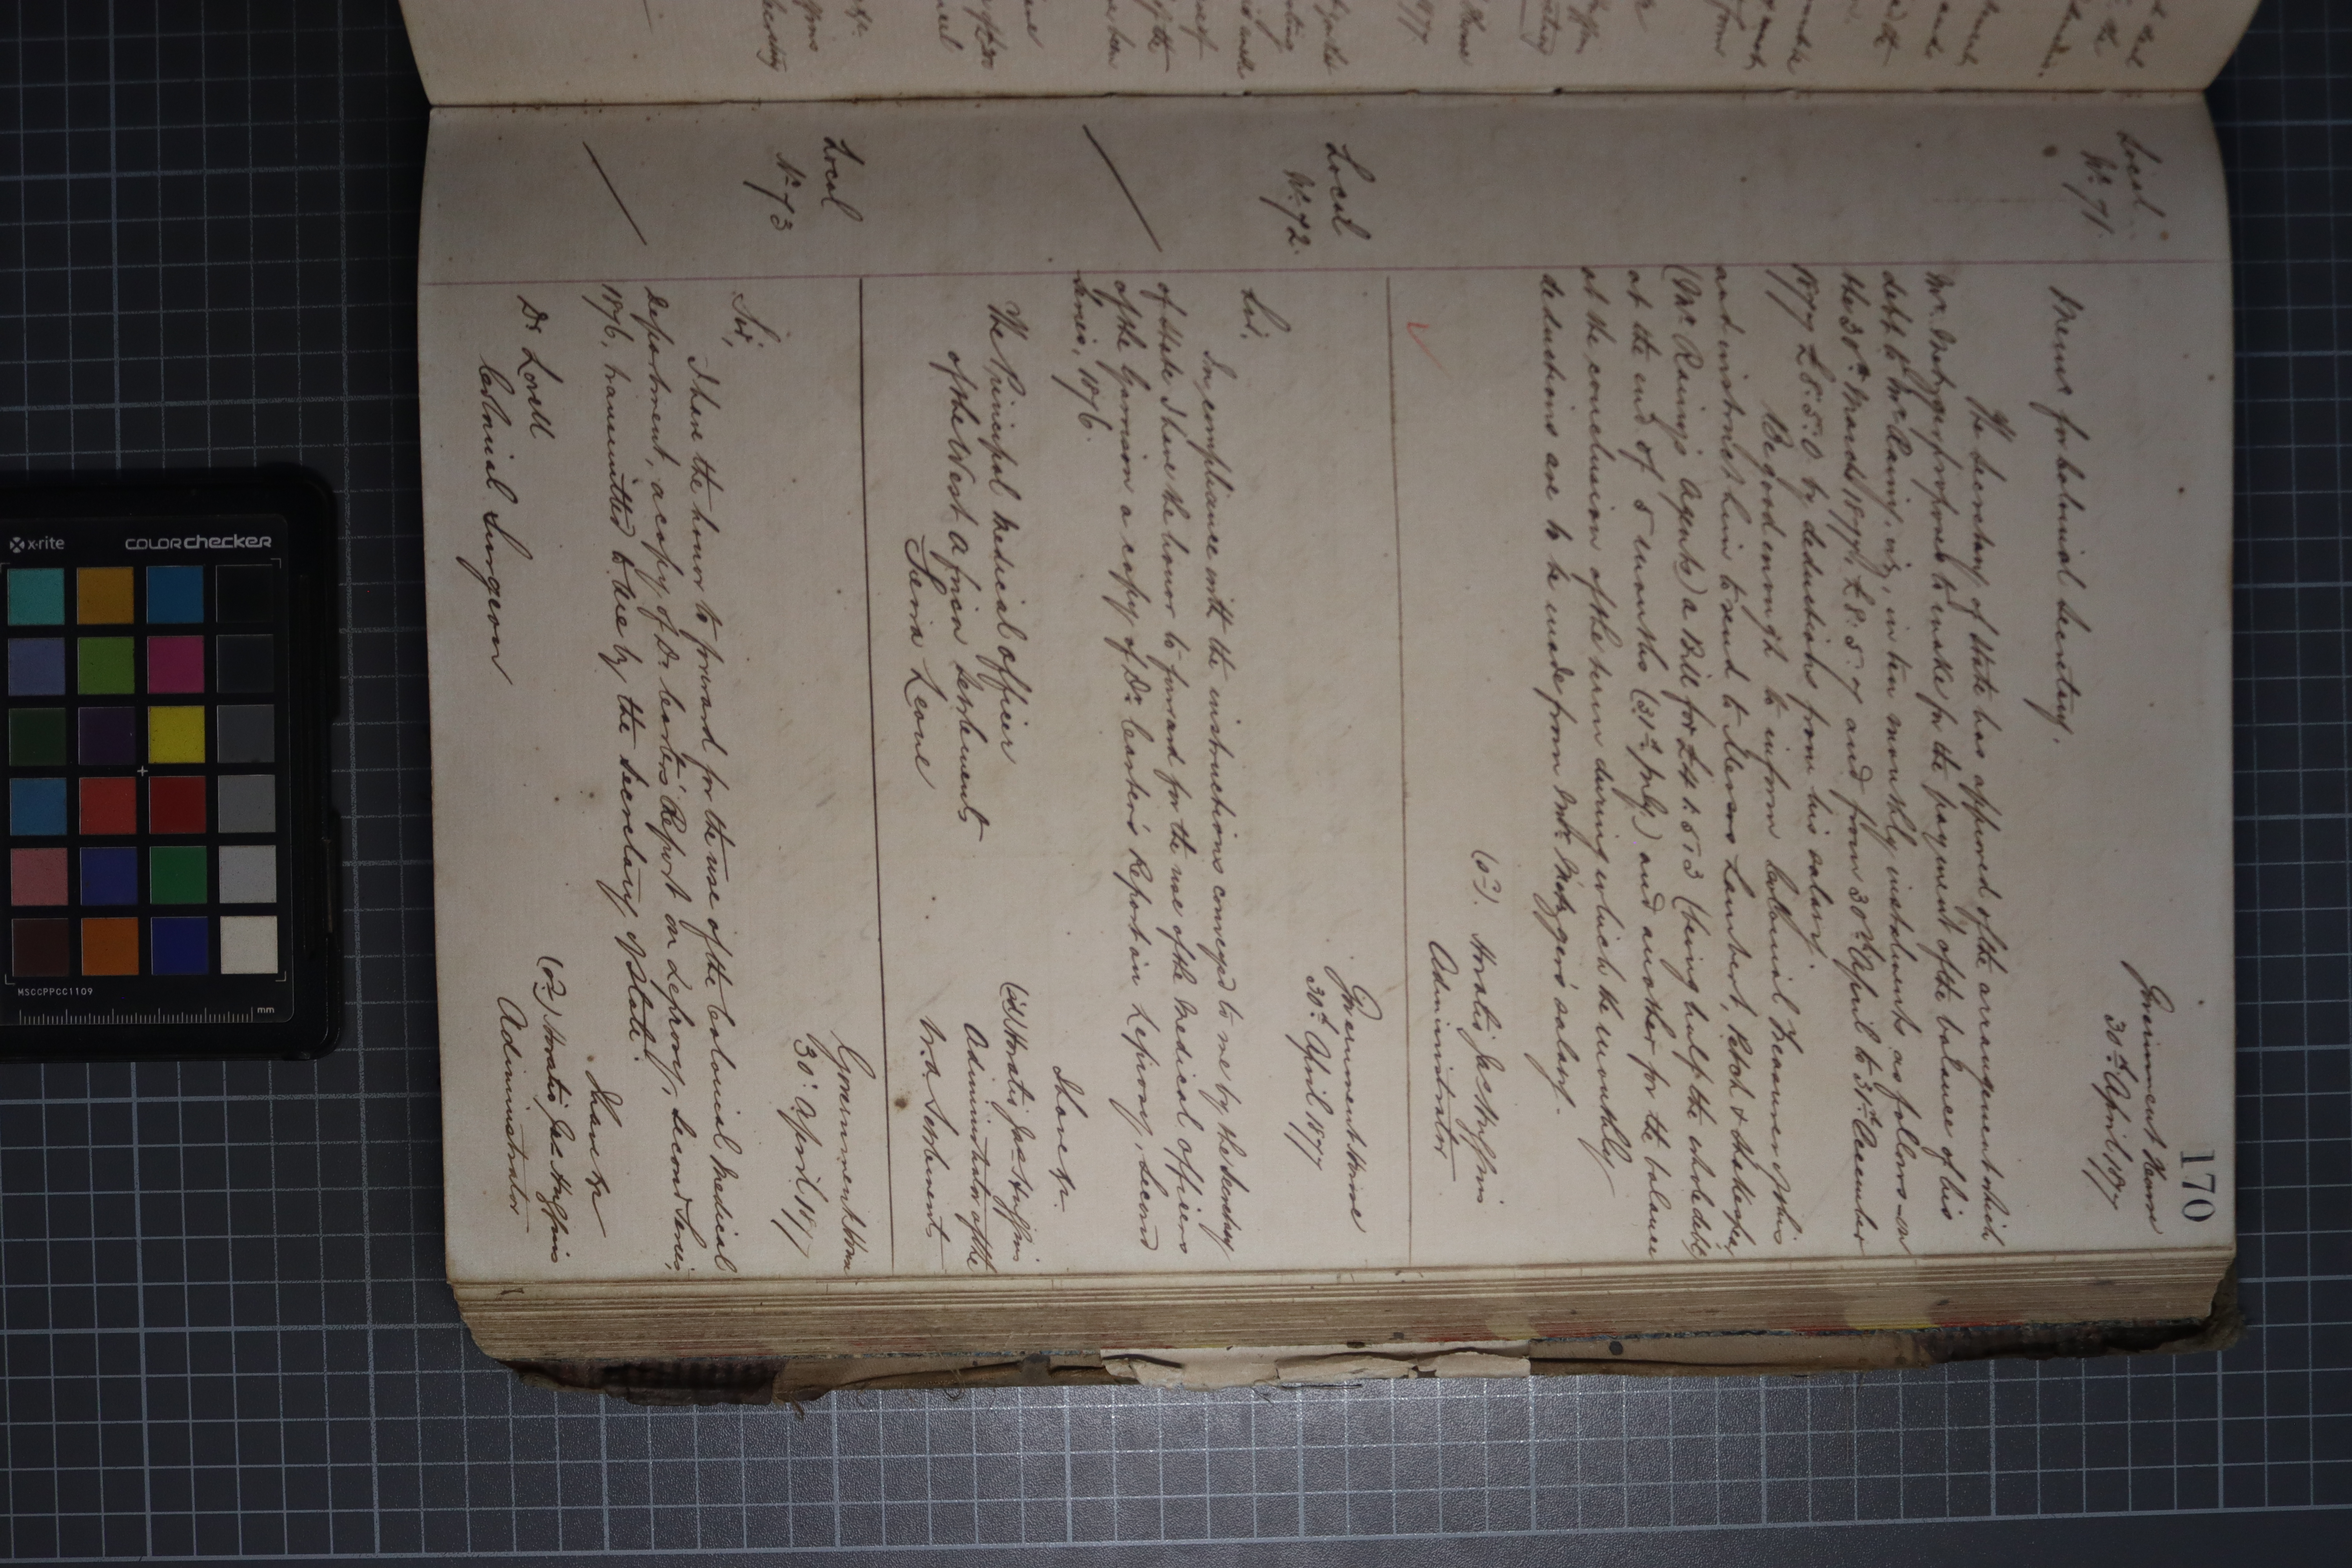 170
Local
No. 71.
Government House
30th April 1877
Memo for Colonial Secretary.
The Secretary of State has approved of the arrangement which
Mr. Metzger proposed to make for the payment of the balance of his
debt to Mr Rainy. viz, in ten monthly instalments as follows - on
the 30th March 1877, £8. 5. 7 and from 30th April to 31st December
1877 £8. 5. 0 by deductions from his salary.
Be good enough to inform Colonial Treasurer of this
and instruct him to send to Messrs Lambert, Petch & Shakespear
(Mr Rainy's Agents) a Bill for £41. 5. 3 (being half the whole debt)
at the end of 5 months (31st July) and another for the balance
at the conclusion of the term during which the monthly
deductions are to be made from Mr. Metzger's salary.
(sd). Horatio Jas Huggins
Administrator
Local
No. 72.
Government House
30th April 1877
Sir,
In compliance with the instructions conveyed to me by the Secretary
of State I have the honor to forward for the use of the Medical Officers
of the Garrison a copy of Dr. Carter's Report on Leprosy, Second
Series, 1876.
I have &c
(sd) Horatio Jas Huggins
Administrator of the
W. A. Settlements
The Principal Medical Officer
of the West African Settlements
Sierra Leone
Local
No. 73
Government House
30th April 1877
Sir,
I have the honor to forward for the use of the Colonial Medical
Department, a copy of Dr. Carter's Report on Leprosy, Second Series,
1876, transmitted to me by the Secretary of State.
I have &c
(sd) Horatio Jas Huggins
Administrator
Dr Lovell
Colonial Surgeon
x-rite
colorchecker
MSCCPPCC1109
mm